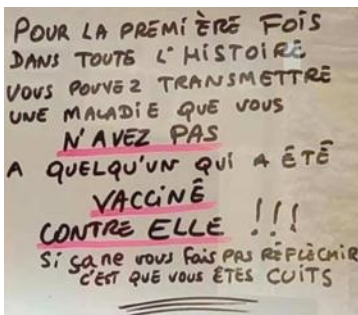 POUR LA PREMIÈRE FOIS
DANS TOUTE L'HISTOIRE
VOUS POUVEZ TRANSMETTRE
UNE MALADIE QUE VOUS
N'AVEZ PAS
A QUELQU'UN QUI A ÉTÉ
VACCINÉ
CONTRE ELLE !!!
Si ça ne vous fais PAS RÉFLÉCHIR
C'EST QUE VOUS ÊTES CUITS